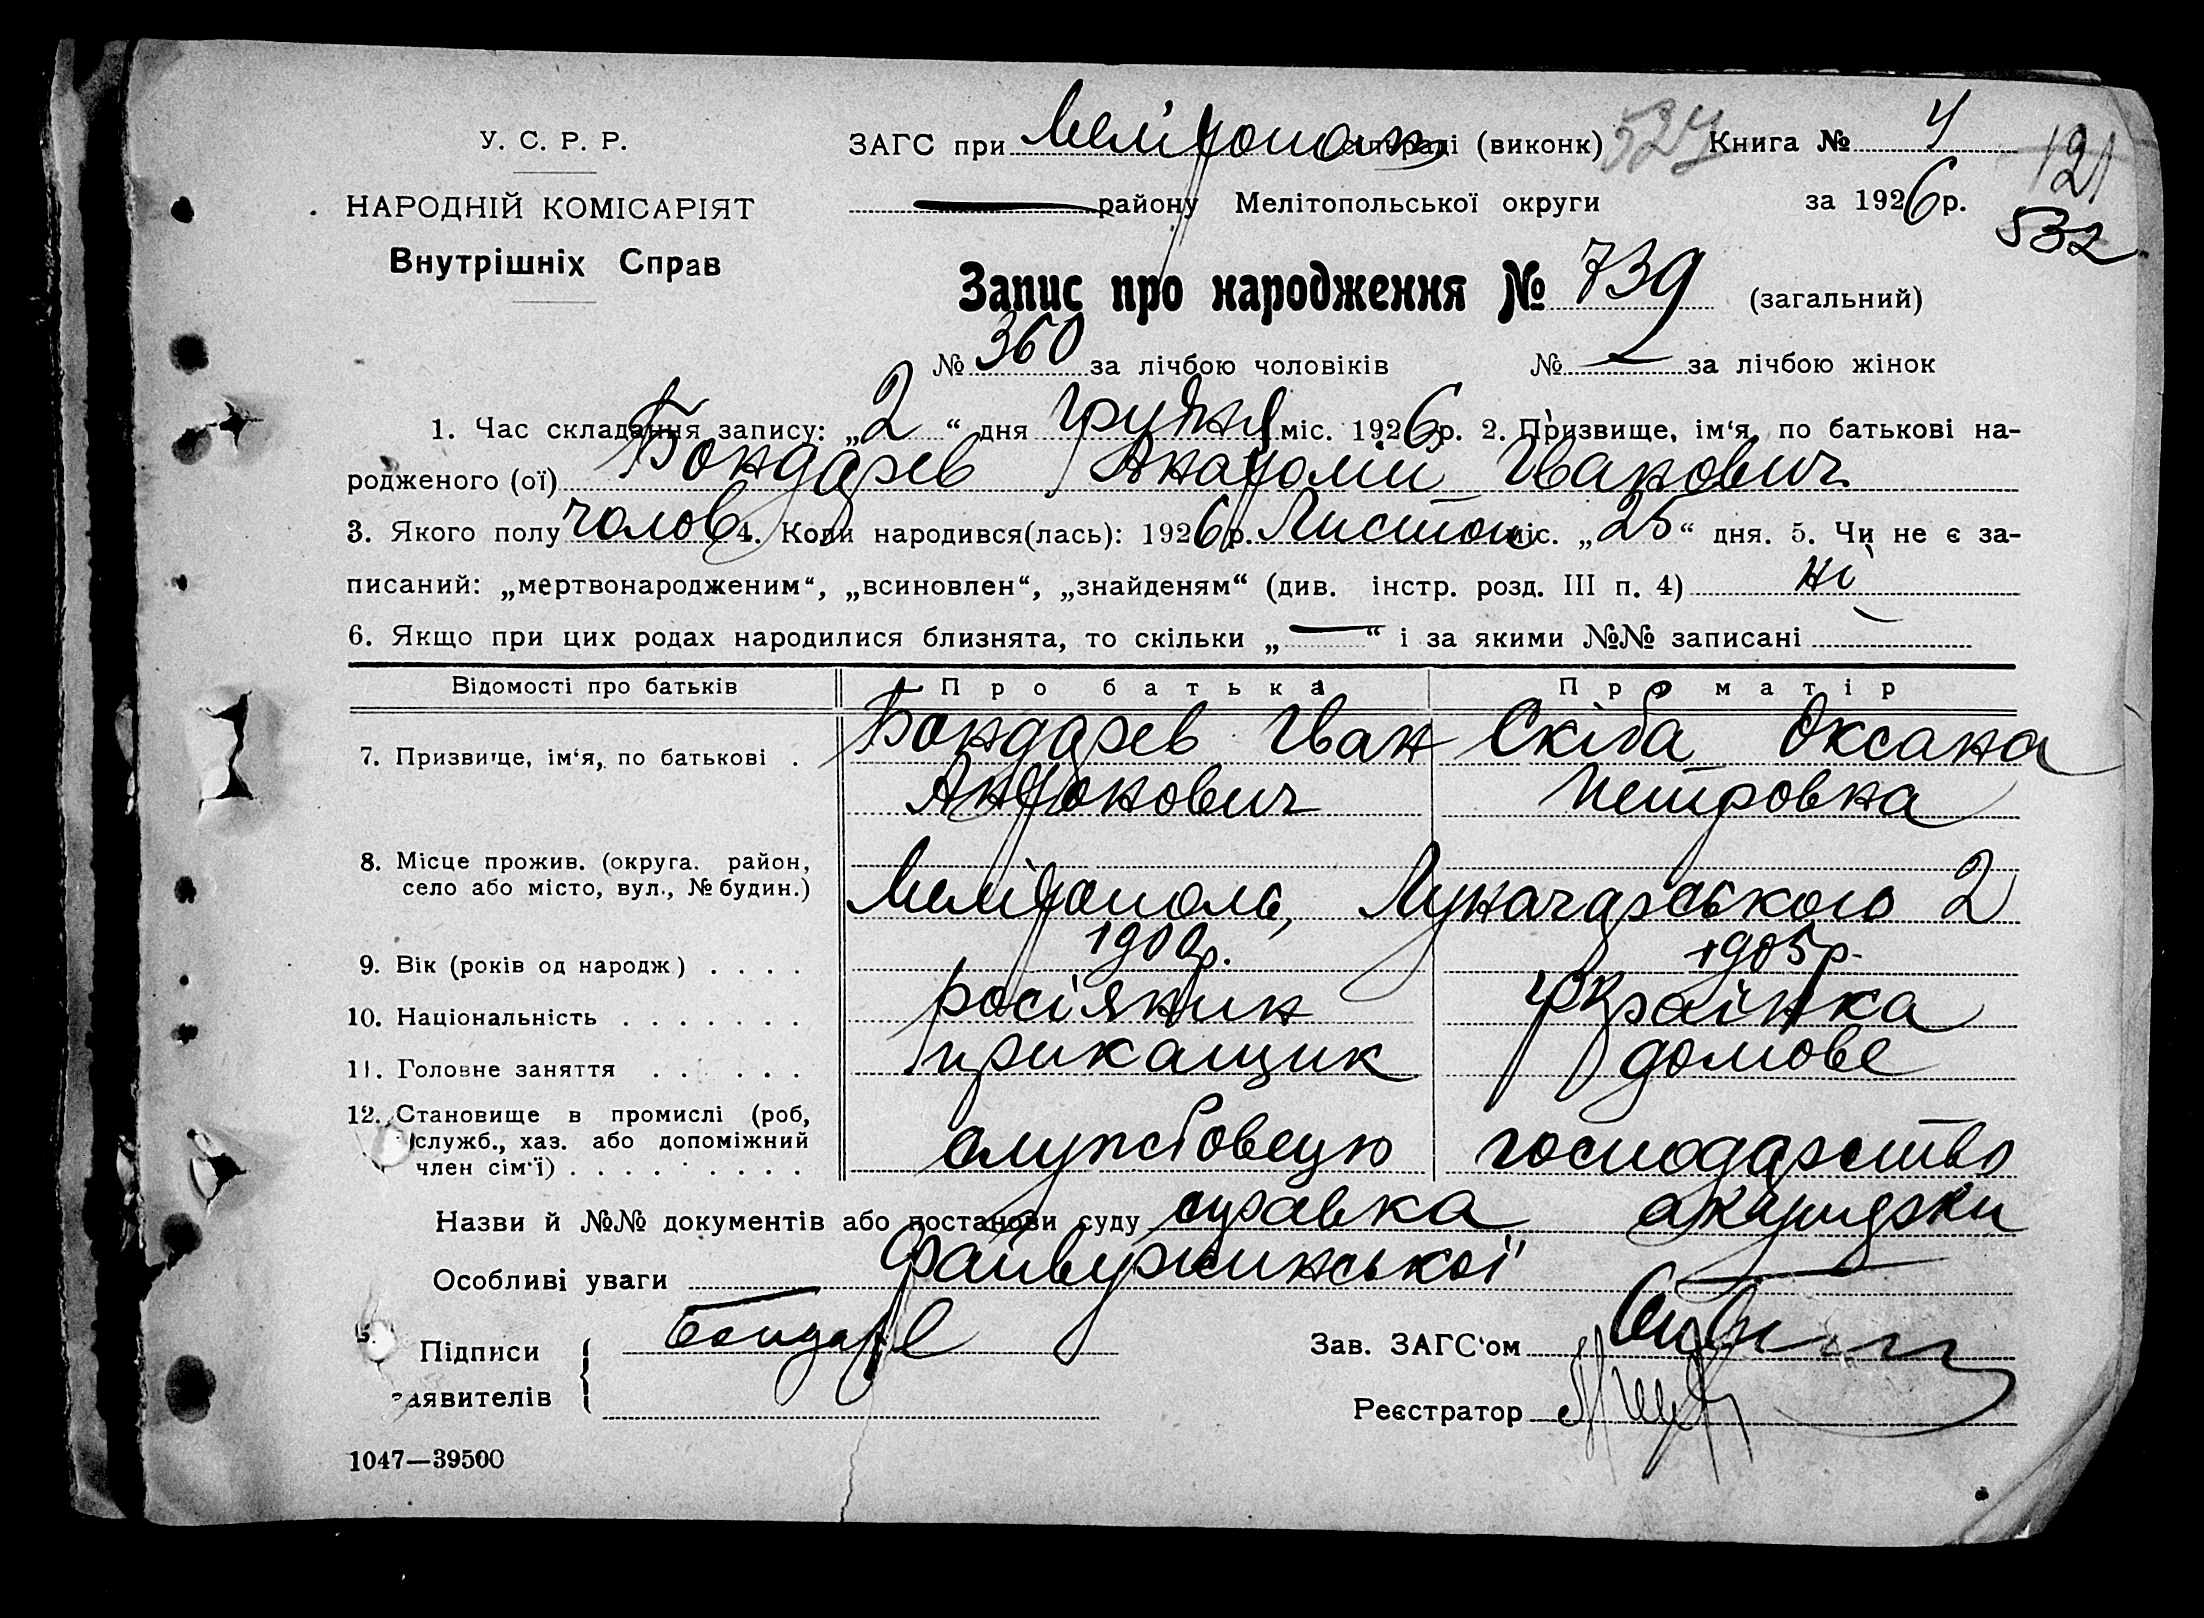 У. С. Р. Р.
НАРОДНІЙ КОМІСАРІЯТ
Внутрішніх Справ
ЗАГС при Мелітопол сільраді (виконк) 527 Книга № 4
121
району Мелітопольської округи за 1926 р.
532
Запис про народження № 739 (загальний)
№ 360 за лічбою чоловіків № — за лічбою жінок
1. Час складання запису: „2“ дня грудня міс. 1926 р. 2. Призвище, ім‘я, по батькові на-
родженого (ої) Бондарев Анатолій Іванович
3. Якого полу чолов 4. Коли народився(лась): 1926 р. Листоп міс. „25“ дня. 5. Чи не є за-
писаний: „мертвонародженим“, „всиновлен“, „знайденям“ (див. інстр. розд. III п. 4) ні
6. Якщо при цих родах народилися близнята, то скільки „—“ і за якими №№ записані
Відомості про батьків Про батька Про матір
7. Призвище, ім‘я, по батькові . Бондарев Іван Скіба Оксана
Антонович Петровна
8. Місце прожив. (округа. район,
село або місто, вул., № будин.) Мелітополь, Луначарського 2
9. Вік (років од народж) . . . . 1900р. 1905р.
10. Національність . . . . . . . росіянин українка
11. Головне заняття . . . . . . прикащик домове
12. Становище в промислі (роб,
служб., хаз. або допоміжний
член сім‘ї) . . . . . . . . . службовецю господарство
Назви й №№ документів або постанови суду справка акушерки
Особливі уваги
Підписи Бондарев
заявителів
Зав. ЗАГС‘ом
Реєстратор
1047—39500